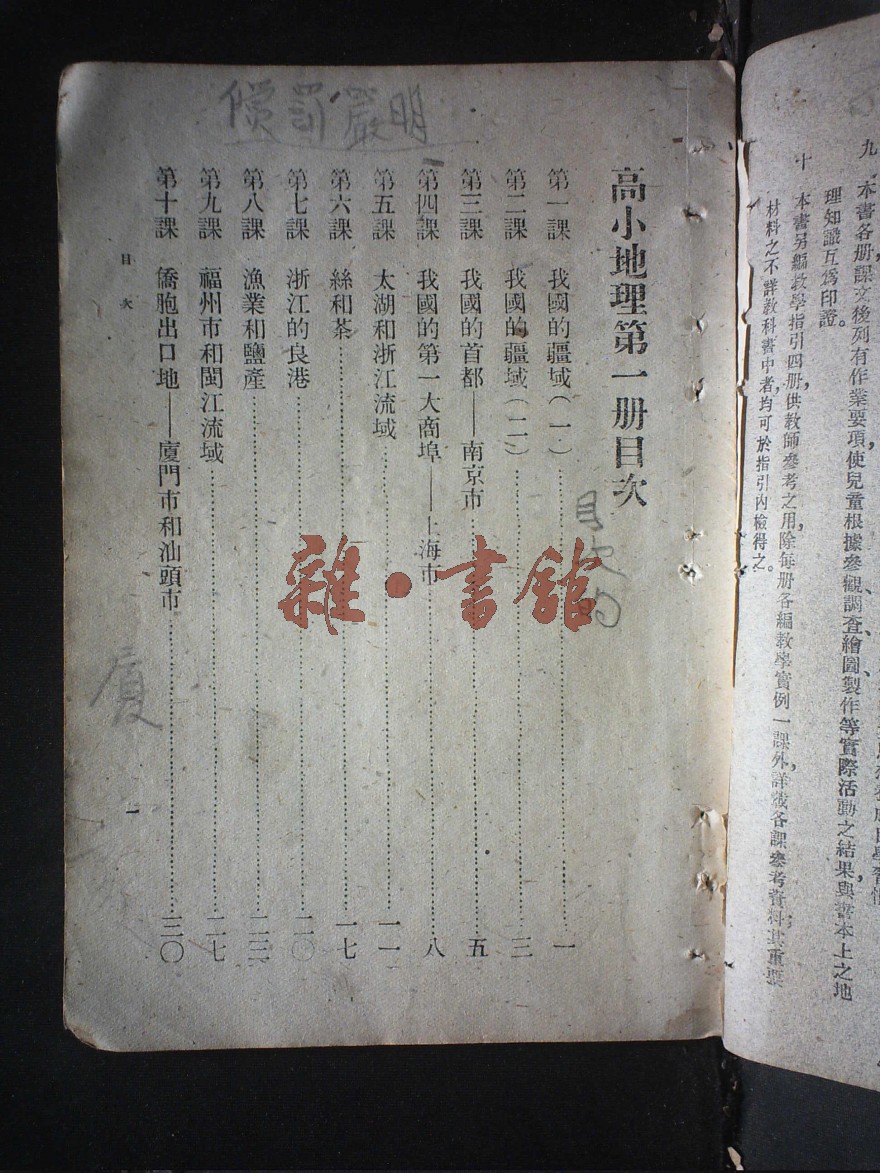 九 本書各册課文後列有作業要項使兒童根據參觀調査繪圖製作等實際活動之結果，與書本上之地
理知識互爲印證。
十 本書另編教學指引四册，供教師參考之用，除每册各編教學實例一課外，詳載各課參考資料；其重要
材料之不詳教科書中者，均可於指引內檢得之。
高小地理第一册目次
第一課 我國的疆域（一）………一
第二課 我國的疆域（二）………三
第三課 我國的首都——南京市………五
第四課 我國的第一大商埠——上海市………八
第五課 太湖和浙江流域………一一
第六課 絲和茶………一七
第七課 浙江的良港………二〇
第八課 漁業和鹽產………二三
第九課 福州市和閩江流域………二七
第十課 僑胞出口地——廈門市和汕頭市………三〇
目次
一
罰嚴明
目次的
雜·書館